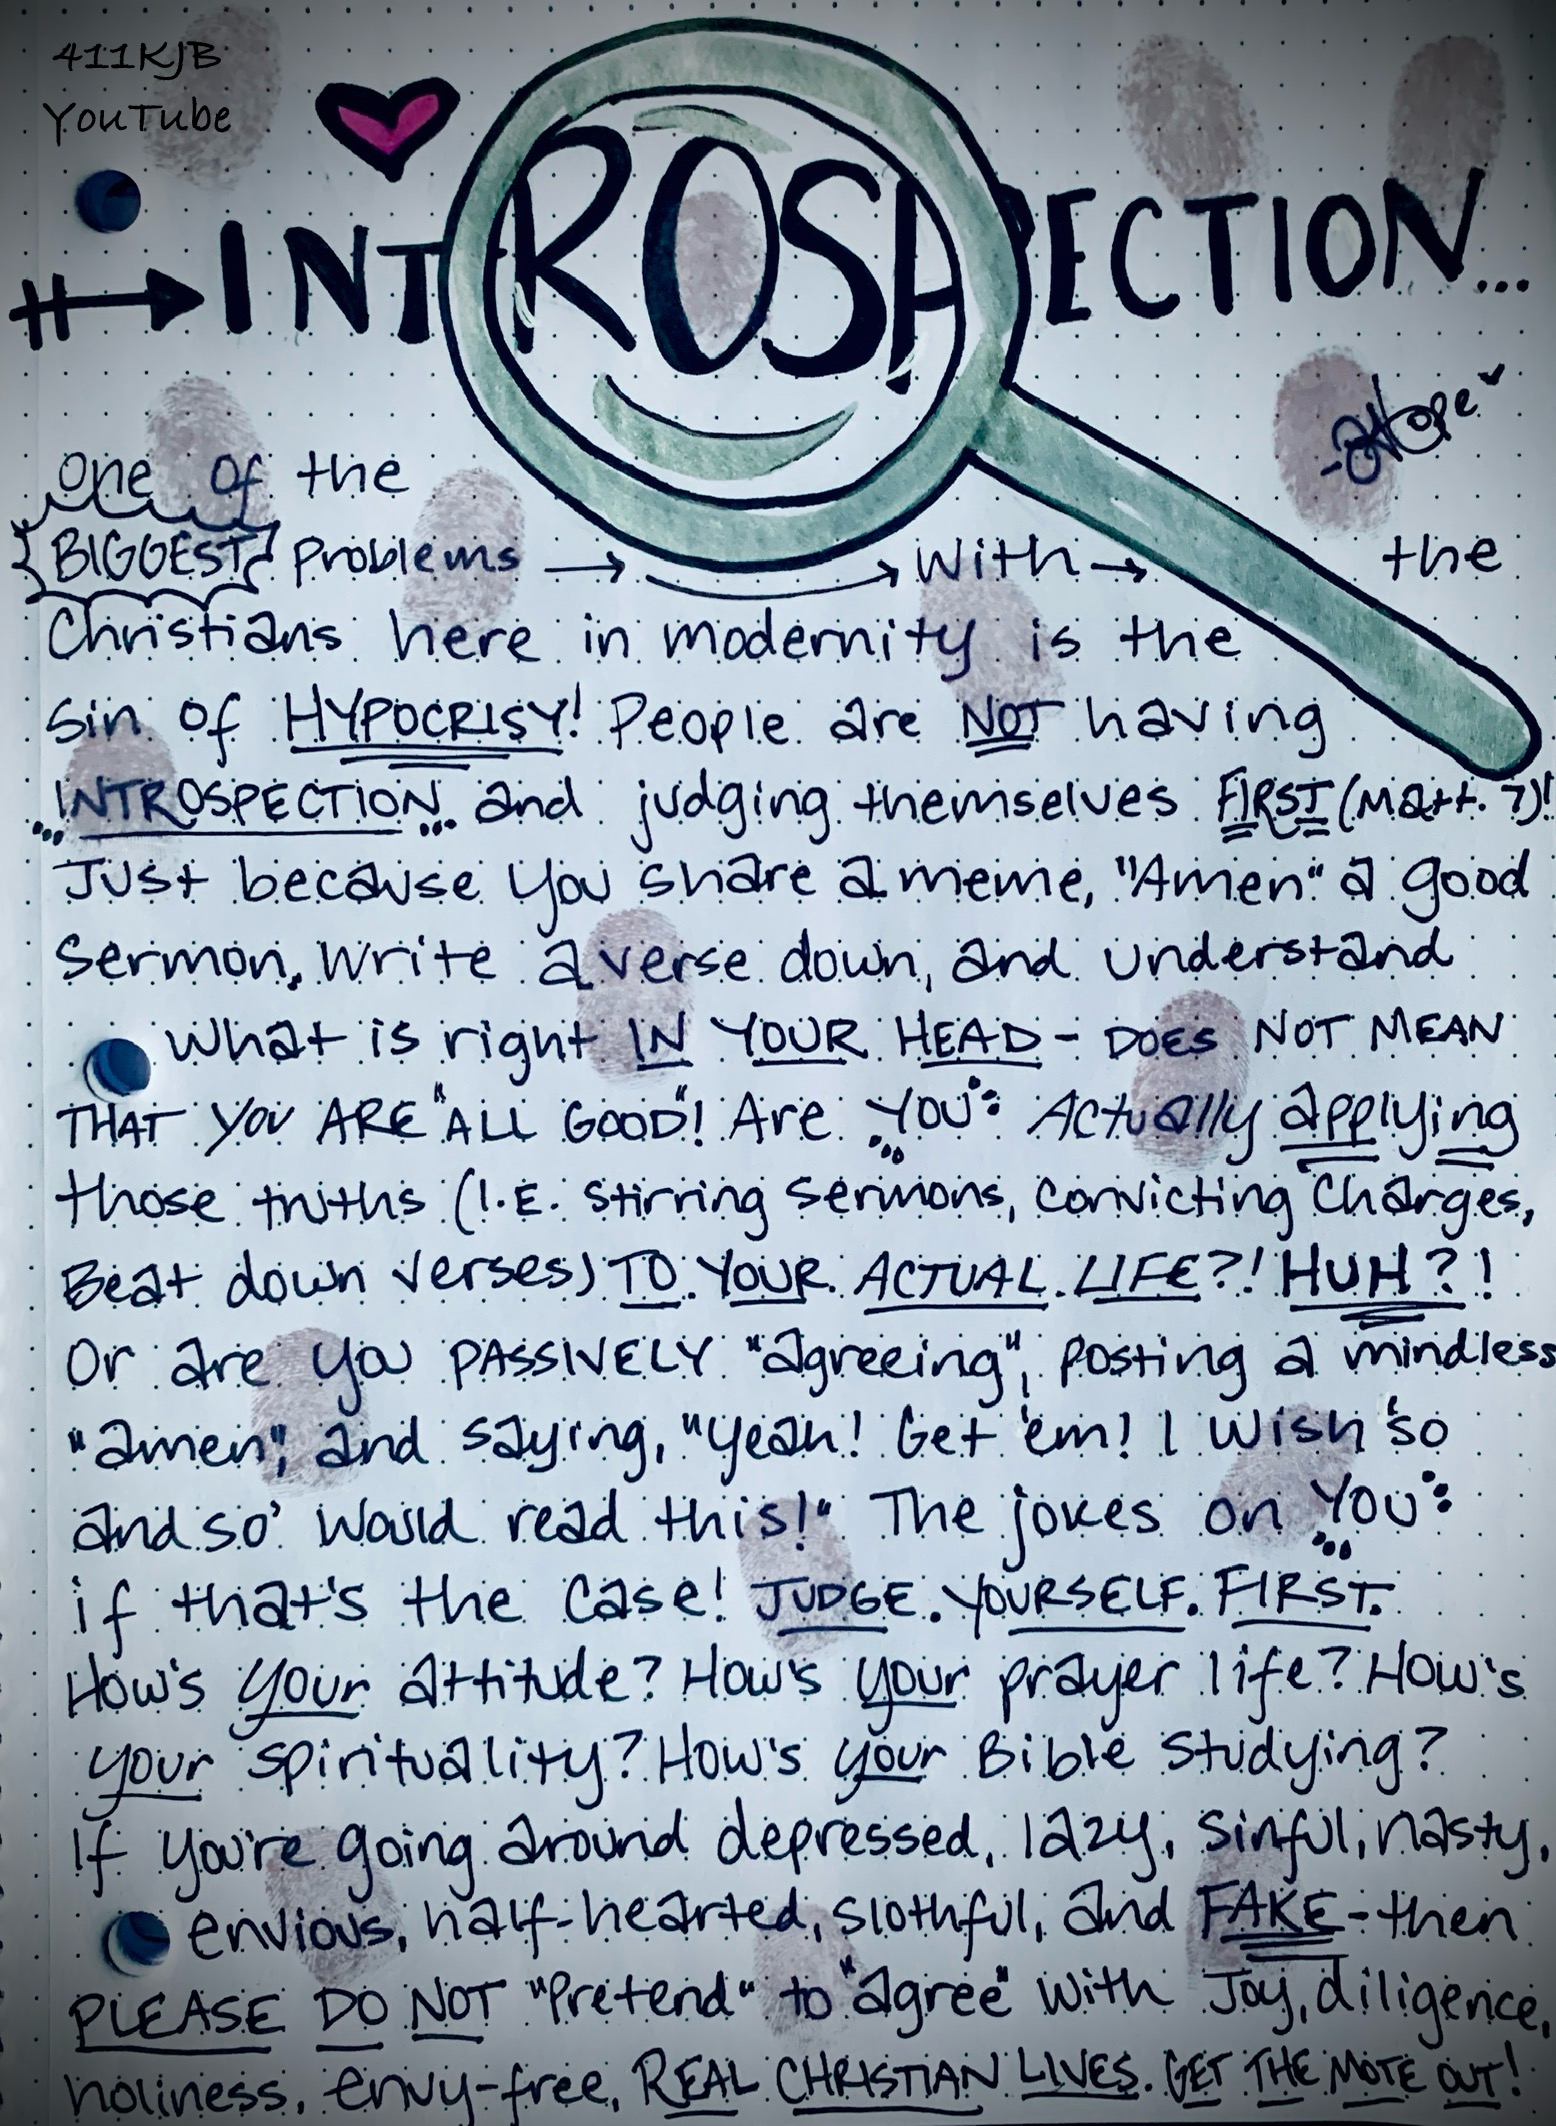 411KJB
YouTube
INTROSPECTION...
-Hope
One of the
BIGGEST Problems → → With → the
Christians here in modernity is the
Sin of HYPOCRISY! People are NOT having
...INTROSPECTION... and judging themselves FIRST (Matt. 7)!
Just because you share a meme, "Amen" a good
Sermon, Write a verse down, and understand
What is right IN YOUR HEAD - DOES NOT MEAN
THAT YOU ARE "ALL GOOD"! Are YOU Actually applying
those truths (I.E. Stirring Sermons, Convicting Charges,
Beat down verses) TO YOUR ACTUAL LIFE?! HUH?!
Or are you PASSIVELY "agreeing", Posting a mindless
"amen", and saying, "Yeah! Get 'em! I wish 'so
and so' would read this!" The jokes on YOU
if that's the case! JUDGE. YOURSELF. FIRST.
How's your attitude? How's your prayer life? How's
your spirituality? How's your Bible Studying?
If you're going around depressed, lazy, Sinful, nasty,
envious, half-hearted, slothful, and FAKE - then
PLEASE DO NOT "Pretend" to "agree" with Joy, diligence,
holiness, envy-free, REAL CHRISTIAN LIVES. GET THE MOTE OUT!